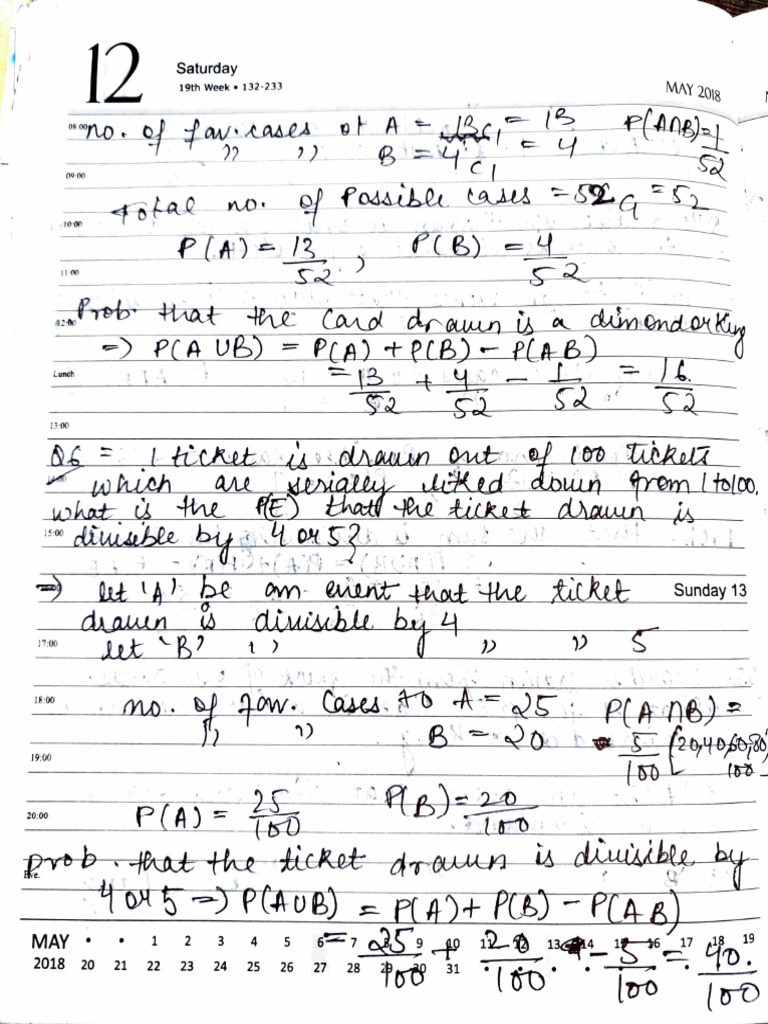 12 Saturday
19th Week • 132-233
MAY 2018
08:00 no. of fav. cases of A = 13C1 = 13 P(A∩B)=1/52
,, ,, B = 4C1 = 4
09:00
Total no. of Possible cases = 52C1 = 52
10:00
P(A) = 13/52, P(B) = 4/52
11:00
12:00 Prob. that the card drawn is a dimond or king
=> P(A ∪B) = P(A) + P(B) - P(AB)
Lunch = 13/52 + 4/52 - 1/52 = 16/52
13:00
Q6 = 1 ticket is drawn out of 100 tickets
which are serialley liked down from 1 to 100.
what is the P(E) that the ticket drawn is
15:00 divisible by 4 or 5?
=> let 'A' be an event that the ticket Sunday 13
drawn is divisible by 4
17:00 let 'B' ,, ,, ,, 5
18:00 no. of fav. Cases to A = 25 P(A ∩B) =
,, ,, B = 20 5/100 [20,40,60,80
100
19:00
20:00 P(A) = 25/100 P(B) = 20/100
Prob. that the ticket drawn is divisible by
Eve.
4 or 5 => P(A∪B) = P(A) + P(B) - P(AB)
= 25/100 + 20/100 - 5/100 = 40/100
MAY • • 1 2 3 4 5 6 7 8 9 10 11 12 13 14 15 16 17 18 19
2018 20 21 22 23 24 25 26 27 28 29 30 31